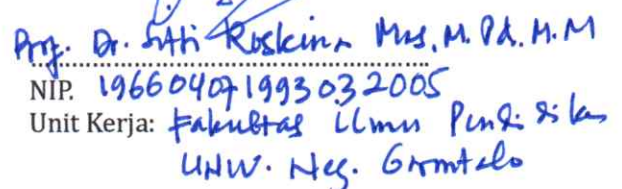 Prof. Dr. Sitti Roskina Mas, M.Pd. M.M
NIP. 196604071993032005
Unit Kerja: Fakultas Ilmu Pendidikan
UNIV. Neg. Gorontalo